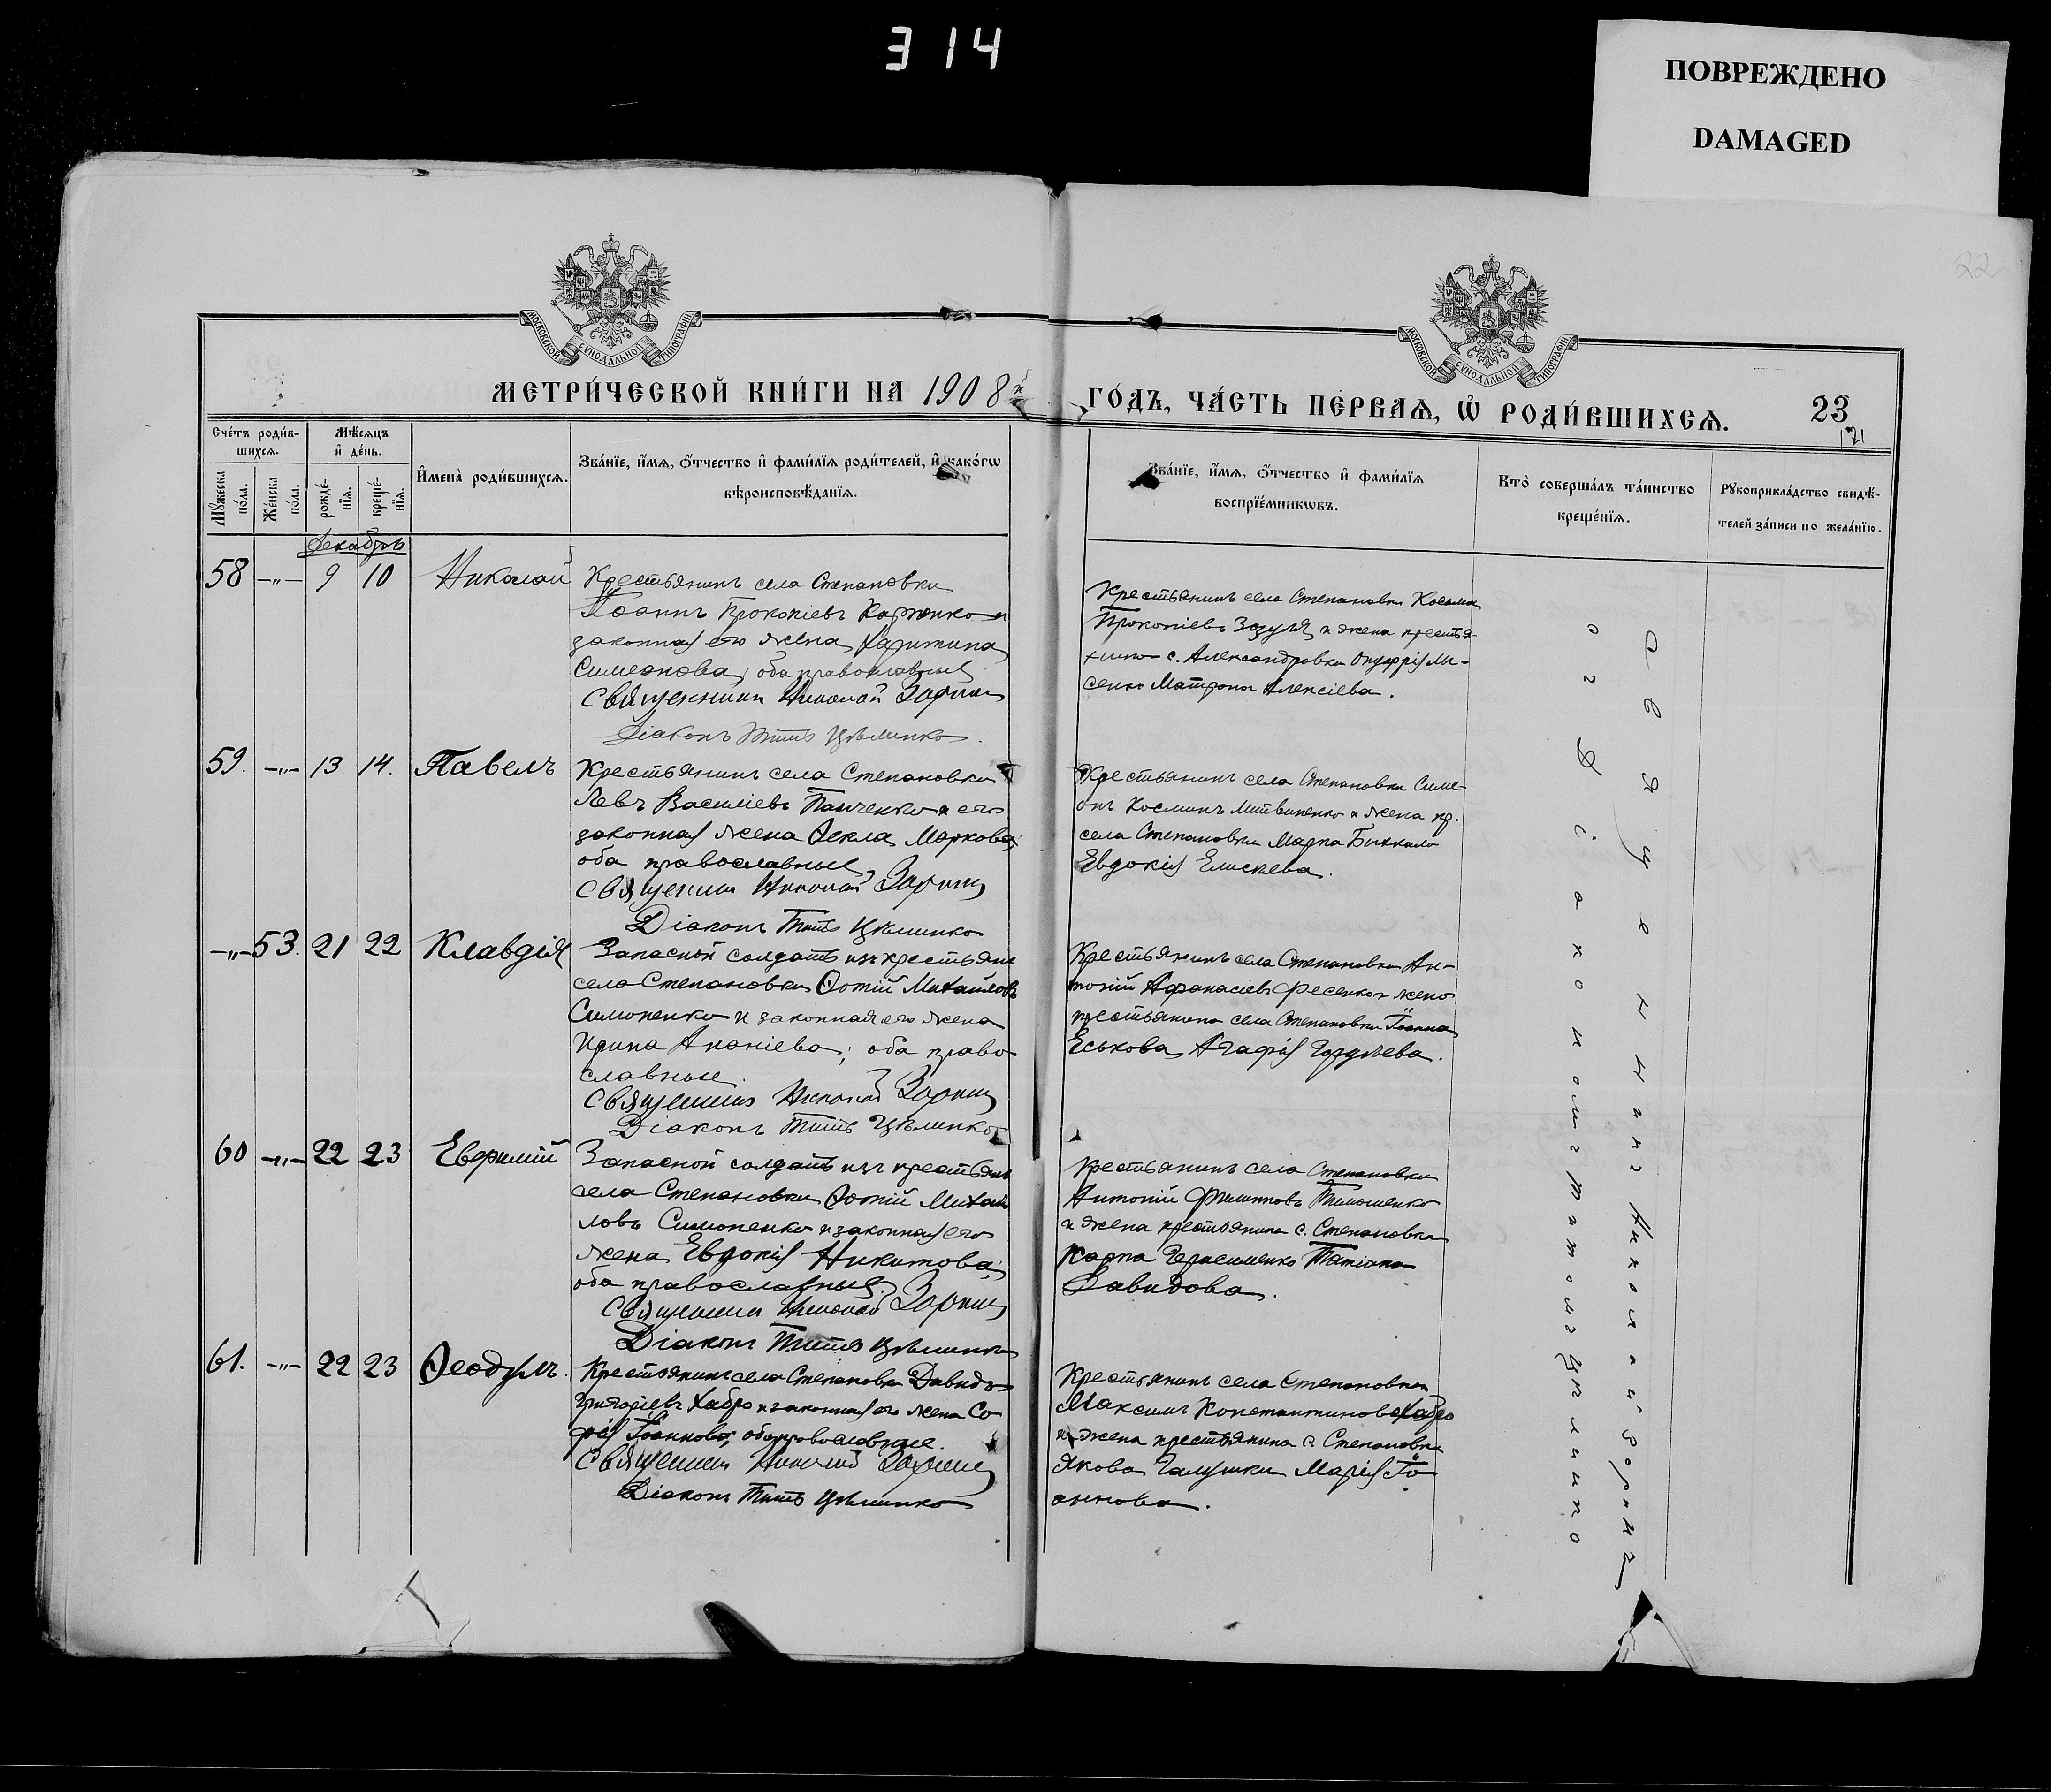 314
ПОВРЕЖДЕНО
DAMAGED
22
МОСКОВСКОЙ СѴНОДАЛЬНОЙ ТИПОГРАФІИ
МОСКОВСКОЙ СѴНОДАЛЬНОЙ ТИПОГРАФІИ
МЕТРИ́ЧЕСКОЙ КНИ́ГИ НА 1908й
ГО́ДЪ, ЧА́СТЬ ПЕ́РВАѦ, Ѡ҆ РОДИ́ВШИХСѦ.
23
121
Счéтъ роди́в-
шихсѧ.
Мѣ́сѧцъ
и҆ де́нь.
Мꙋ́жеска
по́ла.
Же́нска
по́ла.
рожде́-
нїѧ.
креще́-
нїѧ.
И҆мена̀ роди́вшихсѧ.
Зва́нїе, и҆́мѧ, ѻ҆́тчество и҆ фами́лїѧ роди́телей, и҆ како́гѡ
вѣроисповѣ́данїѧ.
Зва́нїе, и҆́мѧ, ѻ҆́тчество и҆ фами́лїѧ
воспрїе́мникѡвъ.
Кто̀ соверша́лъ та́инство
креще́нїѧ.
Рꙋкоприкла́дство свидѣ́-
телей за́писи по жела́нїю.
Декабрь
58 -„- 9 10 Николай
Крестьянинъ села Степановки
Іоаннъ Прокопіевъ Карпенко и
законная его жена Харитина
Симеонова, оба православные
Священникъ Николай Зоринъ
Діаконъ Титъ Цѣлинко.
Крестьянинъ села Степановки Косма
Прокопіевъ Зозуля и жена крестья-
нина с. Александровки Онуфрія Ли-
сенко Матрона Алексіева.
59. -„- 13 14. Павелъ
Крестьянинъ села Степановки
Левъ Василіевъ Панченко и его
законная жена Ѳекла Маркова
оба православные,
Священникъ Николай Зоринъ
Діаконъ Титъ Цѣлинко
Крестьянинъ села Степановки Симе-
онъ Косминъ Литвиненко и жена кр.
села Степановки Марка
Евдокія Елисеева.
-„- 53. 21 22 Клавдія
Запасной солдатъ изъ крестьянъ
села Степановки Ѳотій Михайловъ
Симоненко и законная его жена
Ирина Ананіева; оба право
славные.
Священникъ Николай Зоринъ
Діаконъ Титъ Цѣлинко
Крестьянинъ села Степановки Ан-
тоній Афанасіевъ Фесенко и жена
крестьянина села Степановки Іоанна
Еськова Агафія
60 -„- 22 23 Евфимій
Запасной солдатъ изъ крестьянъ
села Степановки Ѳотій Михай
ловъ Симоненко и законная его
жена Евдокія Никитова;
оба православные.
Священникъ Николай Зоринъ
Діаконъ Титъ Цѣлинко
Крестьянинъ села Степановки
Антоній Филипповъ Тимошенко
и жена крестьянина с. Степановки
Карпа Герасименко Татіана
Давидова.
61. -„- 22 23 Ѳеодулъ.
Крестьянинъ села Степановки Давидъ
Григоріевъ Хабро и законная его жена Со
фія Іоаннова; оба православные.
Священникъ Николай Зоринъ
Діаконъ Титъ Цѣлинко
Крестьянинъ села Степановки
Максимъ Константиновъ Хабро
и жена крестьянина с. Степановки
Якова Галушки Марія Іо
аннова.
Священникъ Николай Зоринъ
съ Діакономъ Титомъ Цѣлинко